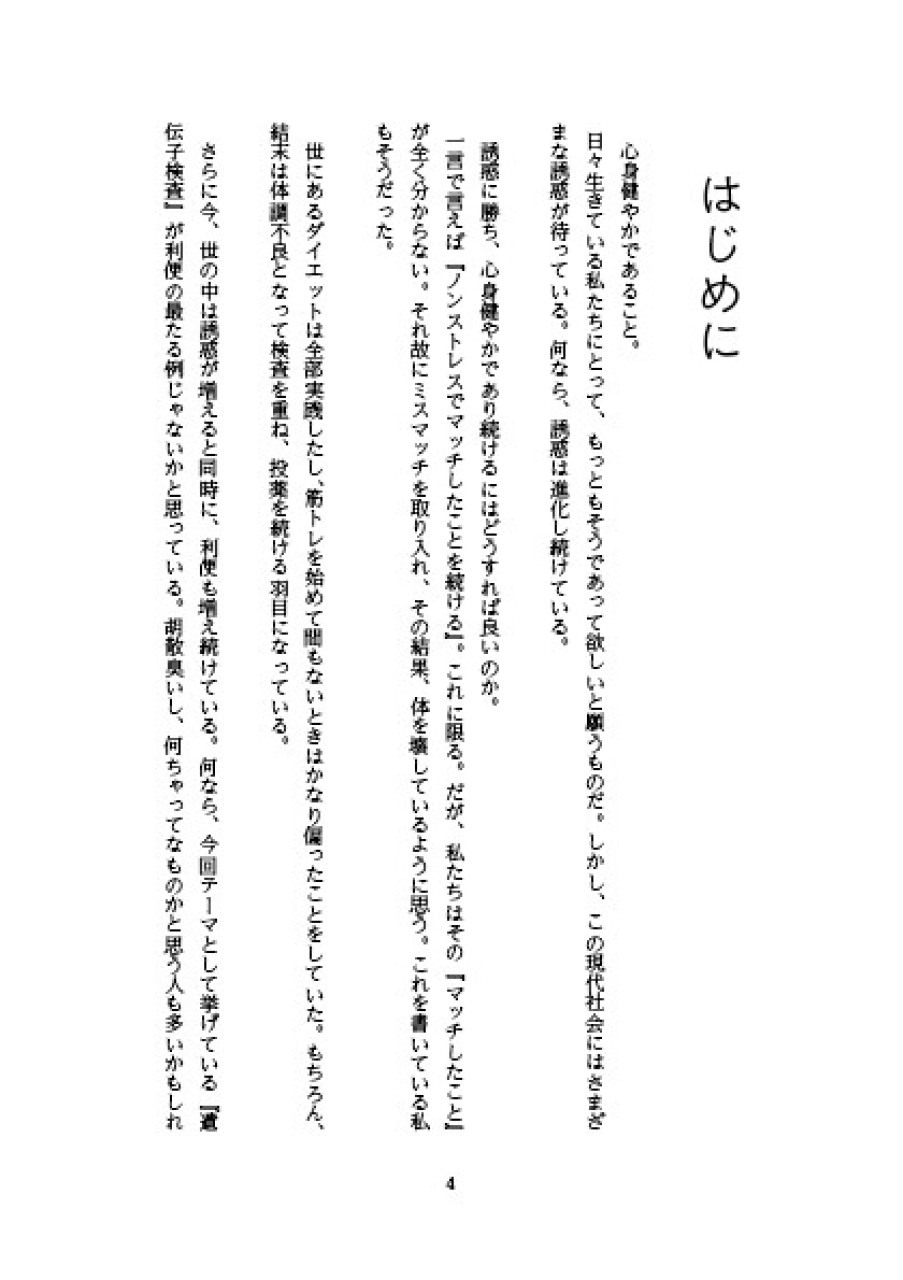 はじめに
心身健やかであること。
日々生きている私たちにとって、もっともそうであって欲しいと願うものだ。しかし、この現代社会にはさまざ
まな誘惑が待っている。何なら、誘惑は進化し続けている。
誘惑に勝ち、心身健やかであり続けるにはどうすれば良いのか。
一言で言えば『ノンストレスでマッチしたことを続ける』。これに限る。だが、私たちはその『マッチしたこと』
が全く分からない。それ故にミスマッチを取り入れ、その結果、体を壊しているように思う。これを書いている私
もそうだった。
世にあるダイエットは全部実践したし、筋トレを始めて間もないときはかなり偏ったことをしていた。もちろん、
結末は体調不良となって検査を重ね、投薬を続ける羽目になっている。
さらに今、世の中は誘惑が増えると同時に、利便も増え続けている。何なら、今回テーマとして挙げている『遺
伝子検査』が利便の最たる例じゃないかと思っている。胡散臭いし、何ちゃってなものかと思う人も多いかもしれ
4